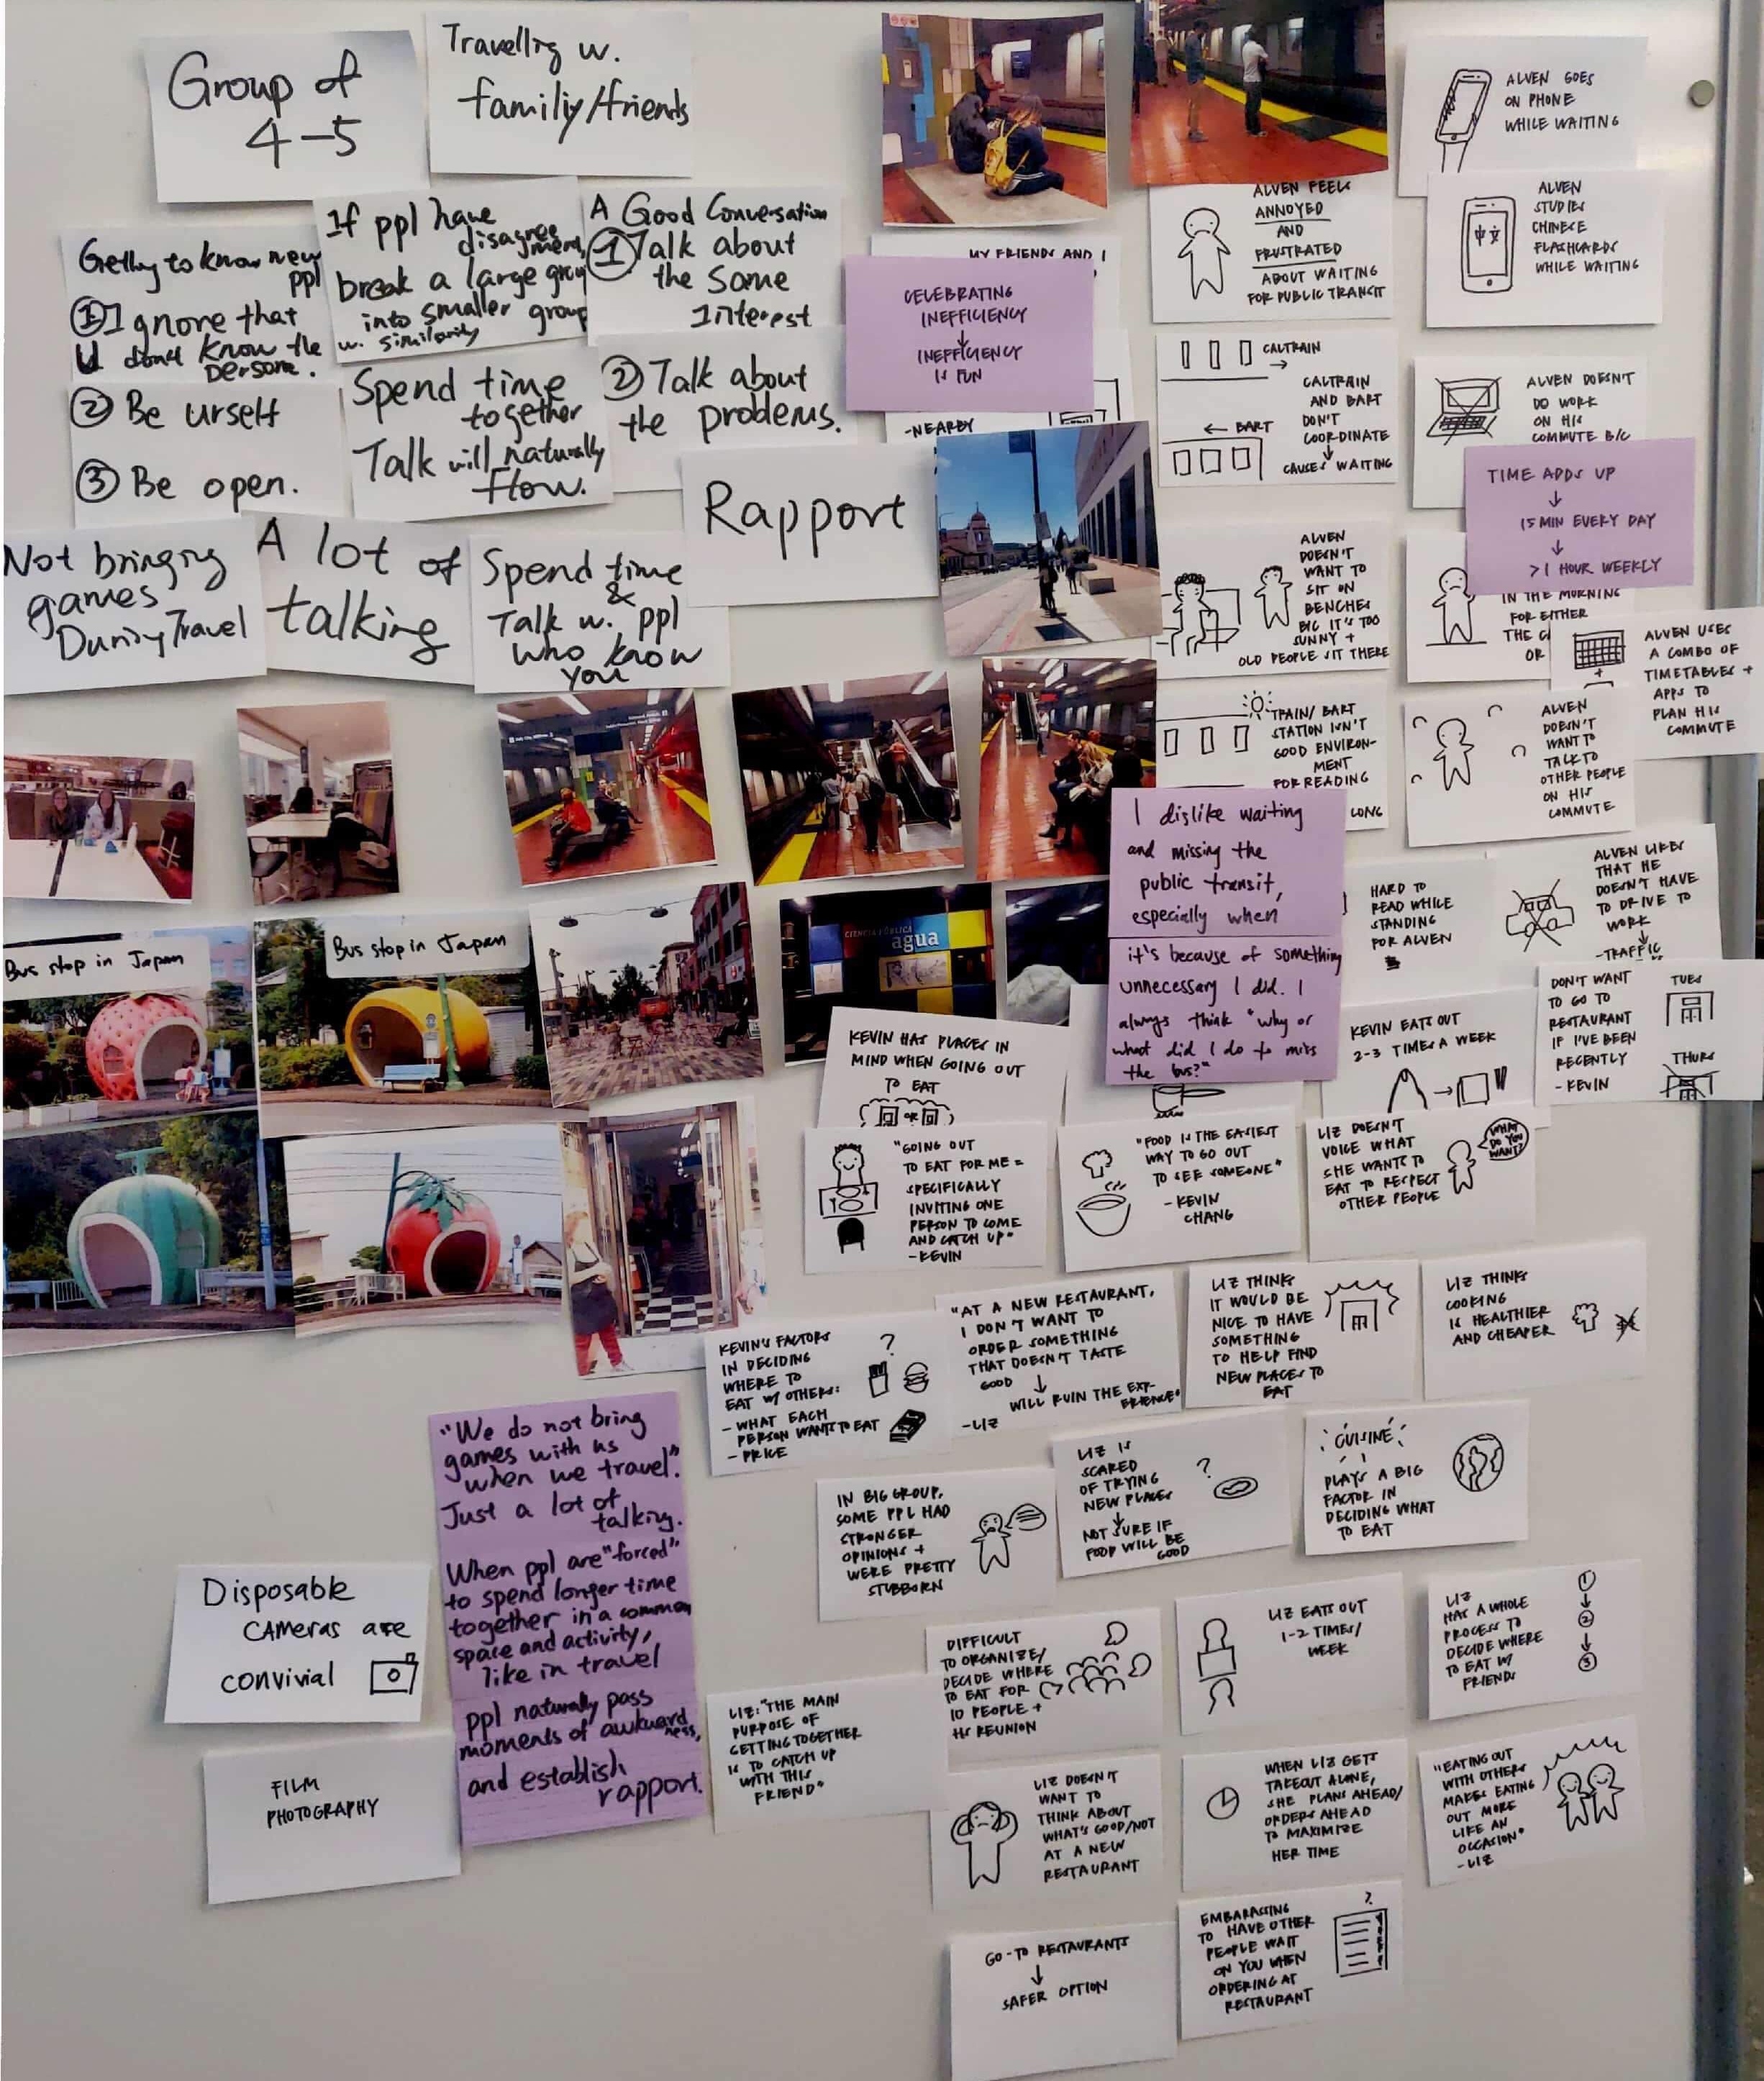 Group of
4-5
Travelling w.
familiy/friends
Getting to know new
ppl
① Ignore that
U don't know the
person.
② Be urself
③ Be open.
If ppl have
disagree
ment,
break a large group
into smaller group
w. similarity
Spend time
together
Talk will naturally
flow.
A Good Conversation
① Talk about
the same
Interest
② Talk about
the problems.
Rapport
Not bringing
games
During Travel
A lot of
talking
Spend time
&
Talk w. ppl
who know
you
MY FRIENDS AND I
CELEBRATING
INEFFICIENCY
↓
INEFFICIENCY
IS FUN
-NEARBY
ALVEN FEELS
ANNOYED
AND
FRUSTRATED
ABOUT WAITING
FOR PUBLIC TRANSIT
CALTRAIN
→
CALTRAIN
AND BART
DON'T
COORDINATE
↓
CAUSES WAITING
← BART
ALVEN
DOESN'T
WANT TO
SIT ON
BENCHES
B/C IT'S TOO
SUNNY +
OLD PEOPLE SIT THERE
TRAIN/BART
STATION ISN'T
GOOD ENVIRON-
MENT
FOR READING
LONG
ALVEN GOES
ON PHONE
WHILE WAITING
中文
ALVEN
STUDIES
CHINESE
FLASHCARDS
WHILE WAITING
ALVEN DOESN'T
DO WORK
ON HIS
COMMUTE B/C
TIME ADDS UP
↓
15 MIN EVERY DAY
↓
>1 HOUR WEEKLY
IN THE MORNING
FOR EITHER
THE
OR
ALVEN USES
A COMBO OF
TIMETABLES +
APPS TO
PLAN HIS
COMMUTE
ALVEN
DOESN'T
WANT TO
TALK TO
OTHER PEOPLE
ON HIS
COMMUTE
I dislike waiting
and missing the
public transit,
especially when
it's because of something
unnecessary I did. I
always think "why or
what did I do to miss
the bus?"
HARD TO
READ WHILE
STANDING
FOR ALVEN
ALVEN LIKES
THAT HE
DOESN'T HAVE
TO DRIVE TO
WORK
↓
-TRAFFIC
Bus stop in Japan
Bus stop in Japan
CIENCIA PÚBLICA
agua
KEVIN HAS PLACES IN
MIND WHEN GOING OUT
TO EAT
OR
KEVIN EATS OUT
2-3 TIMES A WEEK
DON'T WANT
TO GO TO
RESTAURANT
IF I'VE BEEN
RECENTLY
-KEVIN
TUES
THURS
"GOING OUT
TO EAT FOR ME =
SPECIFICALLY
INVITING ONE
PERSON TO COME
AND CATCH UP"
-KEVIN
"FOOD IS THE EASIEST
WAY TO GO OUT
TO SEE SOMEONE"
-KEVIN
CHANG
LIZ DOESN'T
VOICE WHAT
SHE WANTS TO
EAT TO RESPECT
OTHER PEOPLE
WHAT
DO YOU
WANT?
KEVIN'S FACTORS
IN DECIDING
WHERE TO
EAT W/ OTHERS:
-WHAT EACH
PERSON WANTS TO EAT
-PRICE
?
"AT A NEW RESTAURANT,
I DON'T WANT TO
ORDER SOMETHING
THAT DOESN'T TASTE
GOOD
↓
WILL RUIN THE EXP-
ERIENCE"
-LIZ
LIZ THINKS
IT WOULD BE
NICE TO HAVE
SOMETHING
TO HELP FIND
NEW PLACES TO
EAT
LIZ THINKS
COOKING
IS HEALTHIER
AND CHEAPER
"We do not bring
games with us
when we travel".
Just a lot of
talking.
When ppl are "forced"
to spend longer time
together in a common
space and activity,
like in travel
ppl naturally pass
moments of awkward
ness,
and establish
rapport.
IN BIG GROUP,
SOME PPL HAD
STRONGER
OPINIONS +
WERE PRETTY
STUBBORN
LIZ IS
SCARED
OF TRYING
NEW PLACES
↓
NOT SURE IF
FOOD WILL BE
GOOD
?
CUISINE
PLAYS A BIG
FACTOR IN
DECIDING WHAT
TO EAT
Disposable
cameras are
convivial
FILM
PHOTOGRAPHY
LIZ: "THE MAIN
PURPOSE OF
GETTING TOGETHER
IS TO CATCH UP
WITH THIS
FRIEND"
DIFFICULT
TO ORGANIZE/
DECIDE WHERE
TO EAT FOR
10 PEOPLE +
HS REUNION
LIZ EATS OUT
1-2 TIMES/
WEEK
LIZ
HAS A WHOLE
PROCESS TO
DECIDE WHERE
TO EAT W/
FRIENDS
①
↓
②
↓
③
LIZ DOESN'T
WANT TO
THINK ABOUT
WHAT'S GOOD/NOT
AT A NEW
RESTAURANT
WHEN LIZ GETS
TAKEOUT ALONE,
SHE PLANS AHEAD/
ORDERS AHEAD
TO MAXIMIZE
HER TIME
"EATING OUT
WITH OTHERS
MAKES EATING
OUT MORE
LIKE AN
OCCASION"
-LIZ
GO-TO RESTAURANTS
↓
SAFER OPTION
EMBARASSING
TO HAVE OTHER
PEOPLE WAIT
ON YOU WHEN
ORDERING AT
RESTAURANT
?